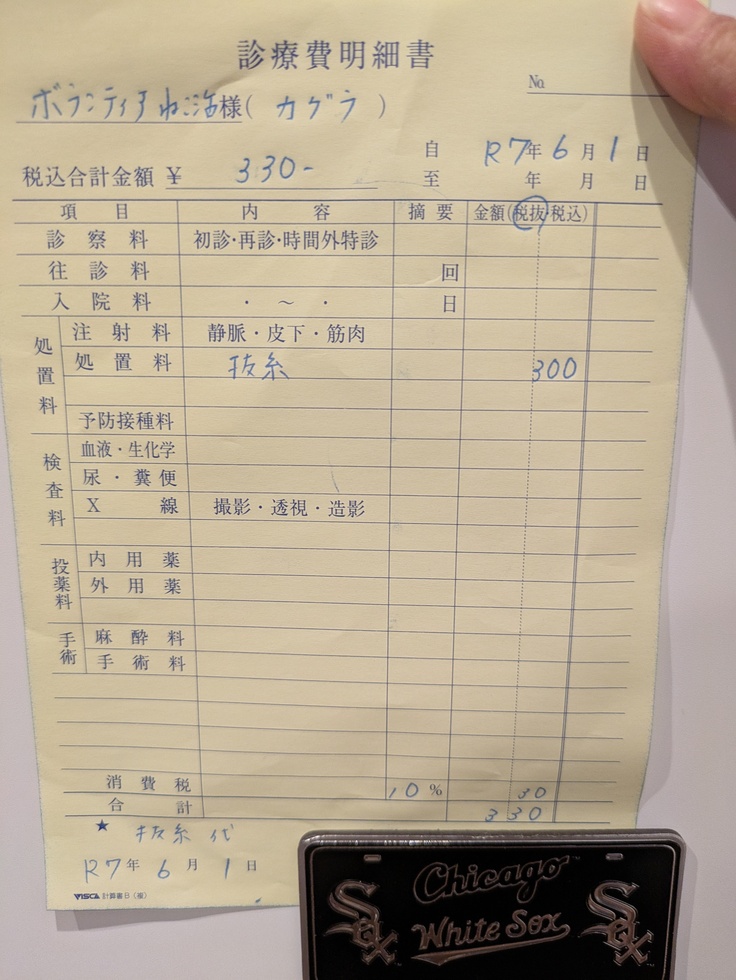 診療費明細書
No.
ボランティア ねこ活様(カグラ)
税込合計金額 ¥ 330-
自 R7年6月1日
至 年 月 日
項目 内容 摘要 金額(税抜・税込)
診察料 初診・再診・時間外特診
往診料 回
入院料 ・ ~ ・ 日
処置料
注射料 静脈・皮下・筋肉
処置料 抜糸 300
予防接種料
検査料
血液・生化学
尿・糞便
X線 撮影・透視・造影
投薬料
内用薬
外用薬
手術
麻酔料
手術料
消費税 10% 30
合計 330
★ 抜糸代
R7年6月1日
VISCA 計算書B(板)
Chicago
White Sox
Sox
Sox